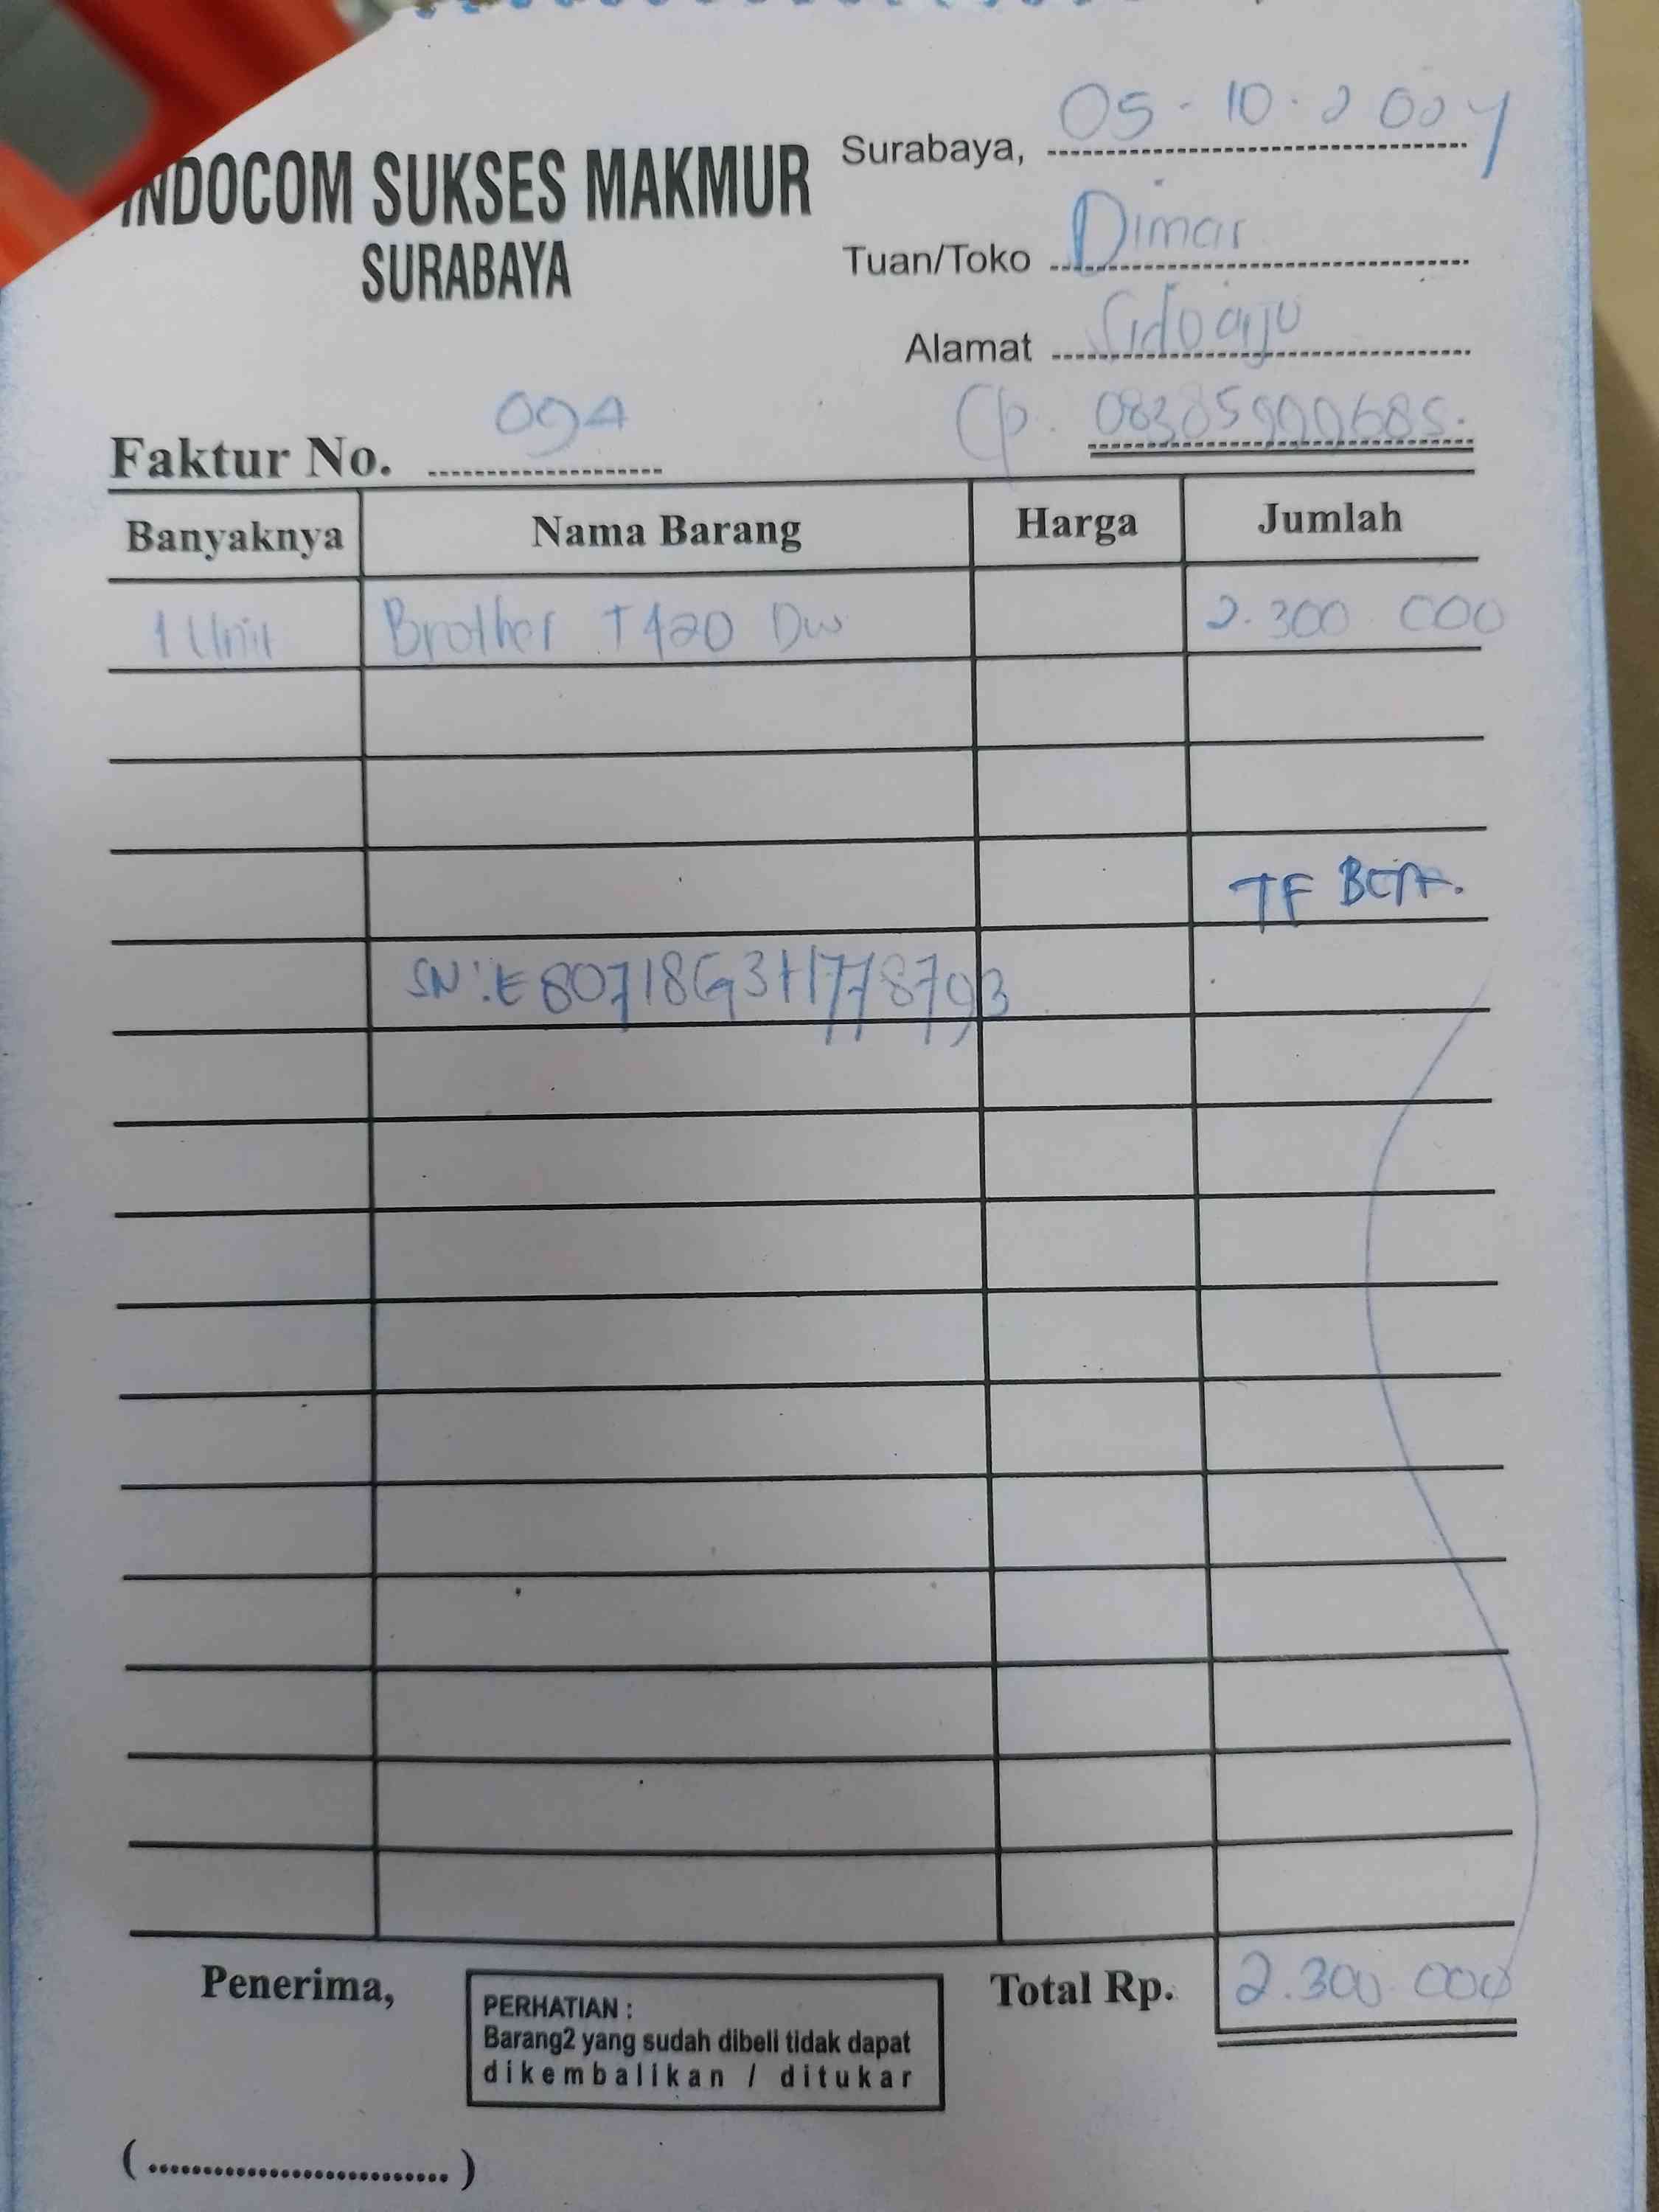 INDOCOM SUKSES MAKMUR
SURABAYA
Surabaya, 05-10-2024
Tuan/Toko Dimas
Alamat Sidoarjo
Faktur No. 094
Cp. 08385999685.
Banyaknya Nama Barang Harga Jumlah
1 Unit Brother T420 Dw 2.300 000
TF BCA.
SN:E80718G3H778793
Penerima,
Total Rp. 2.300 000
PERHATIAN :
Barang2 yang sudah dibeli tidak dapat
dikembalikan / ditukar
(............................)